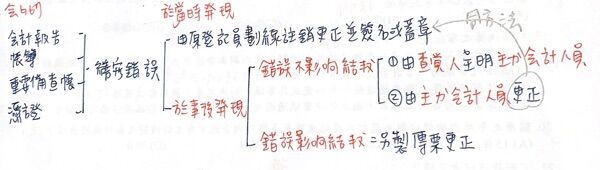 会68的
於當時發現
同方法
由原登記員劃線註銷更正並簽名或蓋章
会計報告
帳簿
重要備查帳
憑證
繕寫錯誤
於事後發現
錯誤不影响結敉
①由查覺人呈明主办会計人員
②由主办会計人員更正
錯誤影响結敉=另製傳票更正